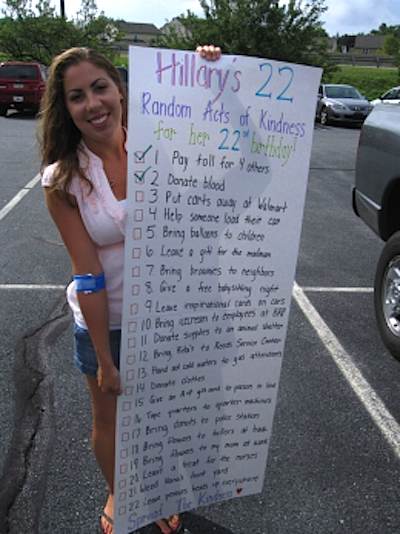 Hillary's 22
Random Acts of Kindness
for her 22nd birthday!
1 Pay toll for 4 others
2 Donate blood
3 Put carts away at Walmart
4 Help someone load their car
5 Bring balloons to children
6 Leave a gift for the mailman
7 Bring brownies to neighbors
8 Give a free babysitting night
9 Leave inspirational cards on cars
10 Bring icecream to employees at
11 Donate supplies to an animal shelter
12 Bring Rita's to Reeds Service Center
13 Hand out cold waters to gas attendants
14 Donate clothes
15 Give an gift card to person in line
16 Tape quarters to quarter machines
17 Bring donuts to police station
18 Bring flowers to tellers at bank
19 Bring flowers to my mom at work
20 Leave a treat for the nurses
21 Weed Nana's front yard
22 Leave pennies heads up everywhere
Spread The Kindness